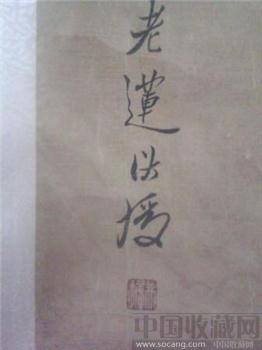 老蓮洪綬
中国收藏网
http://www.socang.com/ 中国收藏网